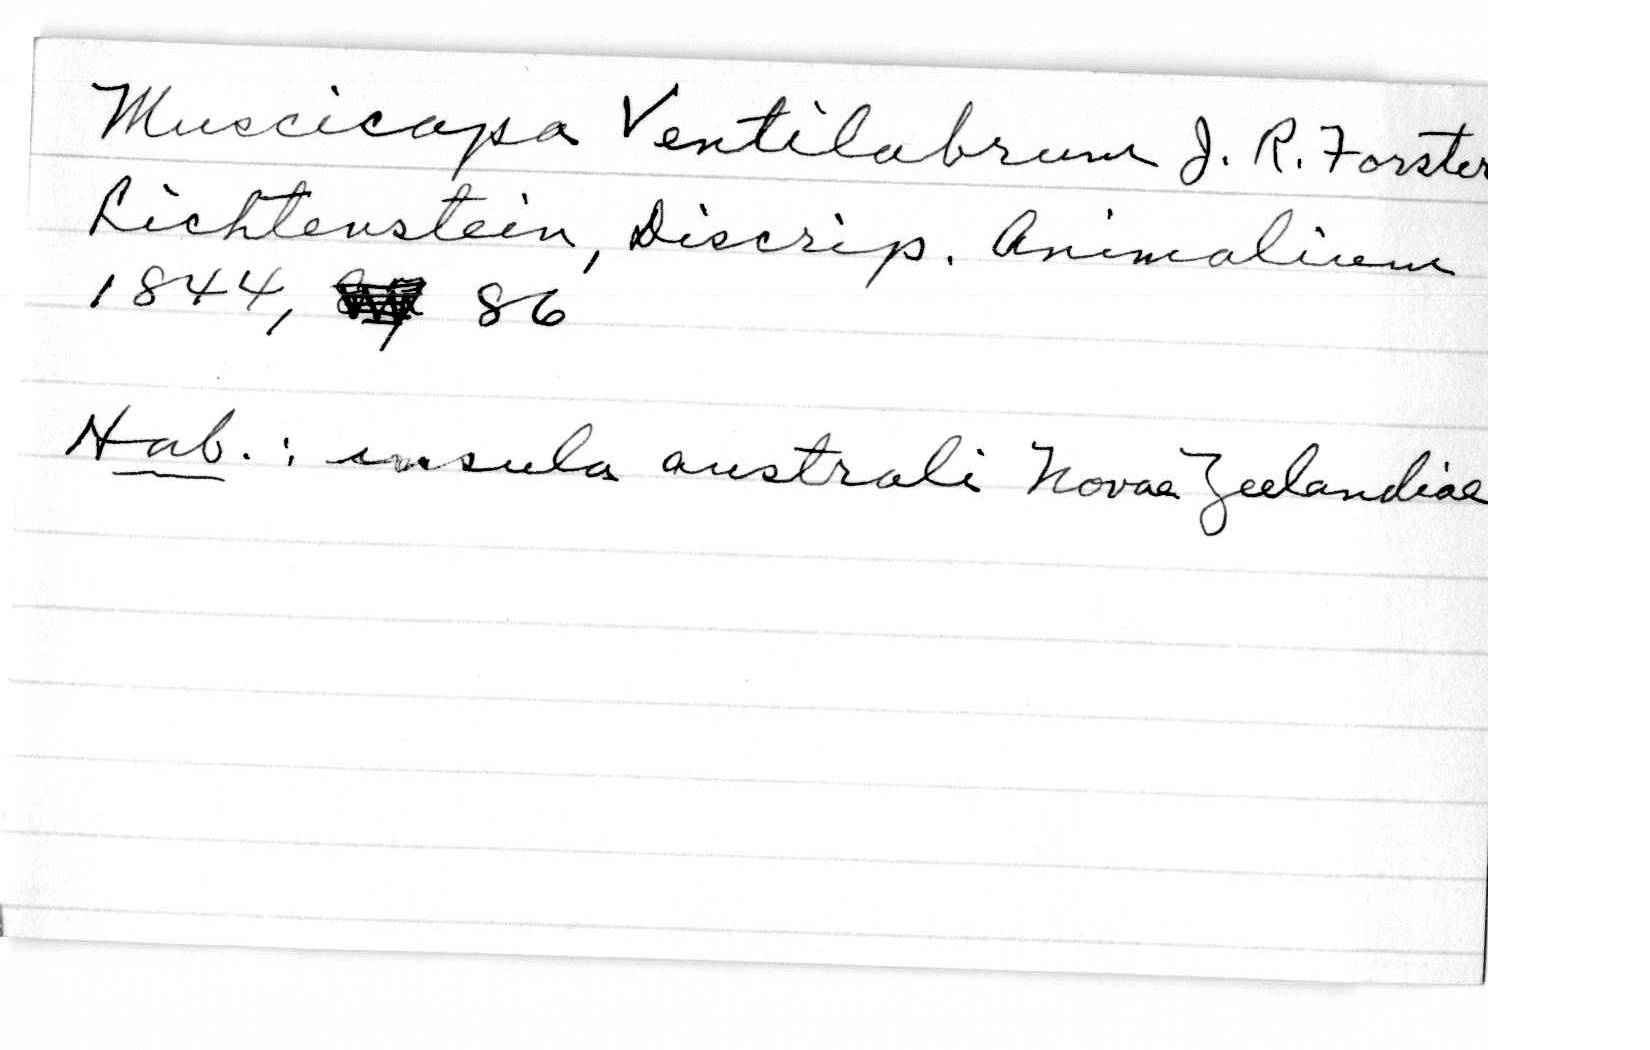 Muscicapa Ventilabrum J. R. Forster
Lichtenstein, Discrip. Animalium
1844, 86
Hab.: insula australi Novae Zeelandiae